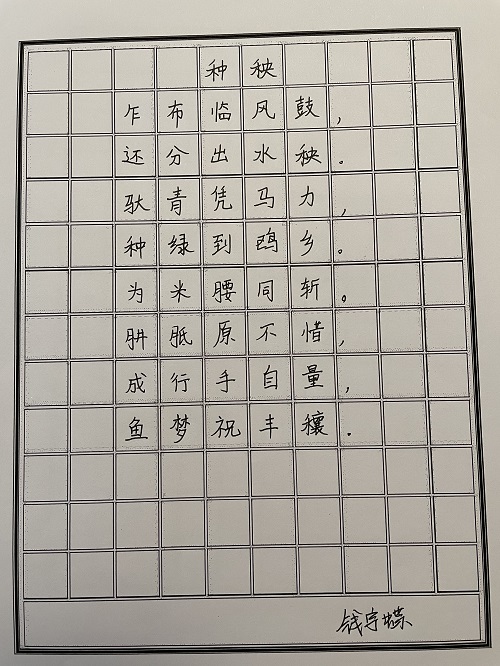 种秧
乍布临风鼓，
还分出水秧。
驮青凭马力，
种绿到鸥乡。
为米腰同斩。
胼胝原不惜，
成行手自量，
鱼梦祝丰穰.
钱宇蝶